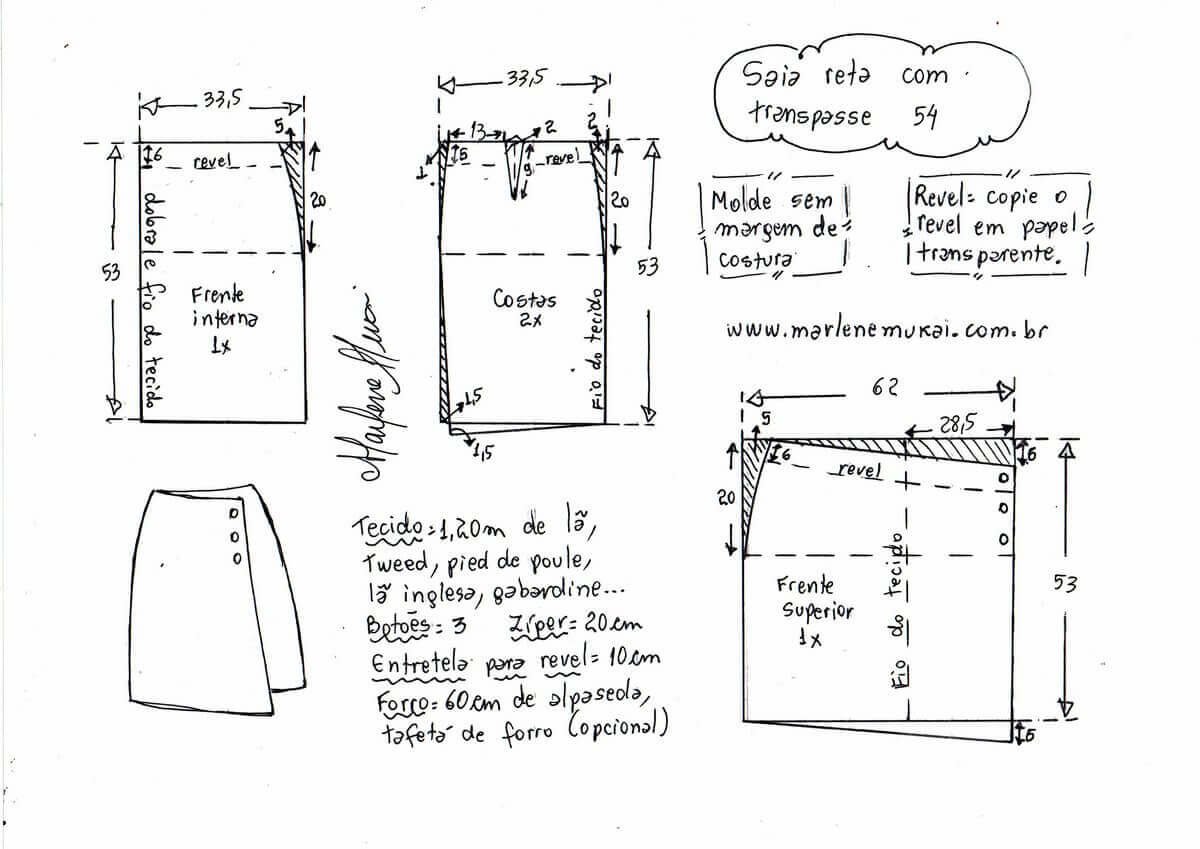 Saia reta com
transpasse 54
Molde sem
margem de
costura
Revel= copie o
revel em papel
transparente.
www.marlenemukai.com.br
33,5
5
6
revel
20
53
dobra e fio do tecido
Frente
interna
1x
33,5
13
2
2
1
5
9
revel
20
53
Costas
2x
Fio do tecido
1,5
1,5
Marlene Mukai
62
28,5
5
6
6
revel
20
53
Frente
Superior
1x
Fio do tecido
6
Tecido=1,20m de lã,
tweed, pied de poule,
lã inglesa, gabardine...
Botões= 3 Zíper= 20cm
Entretela para revel= 10cm
Forro= 60cm de alpaseda,
tafetá de forro (opcional)